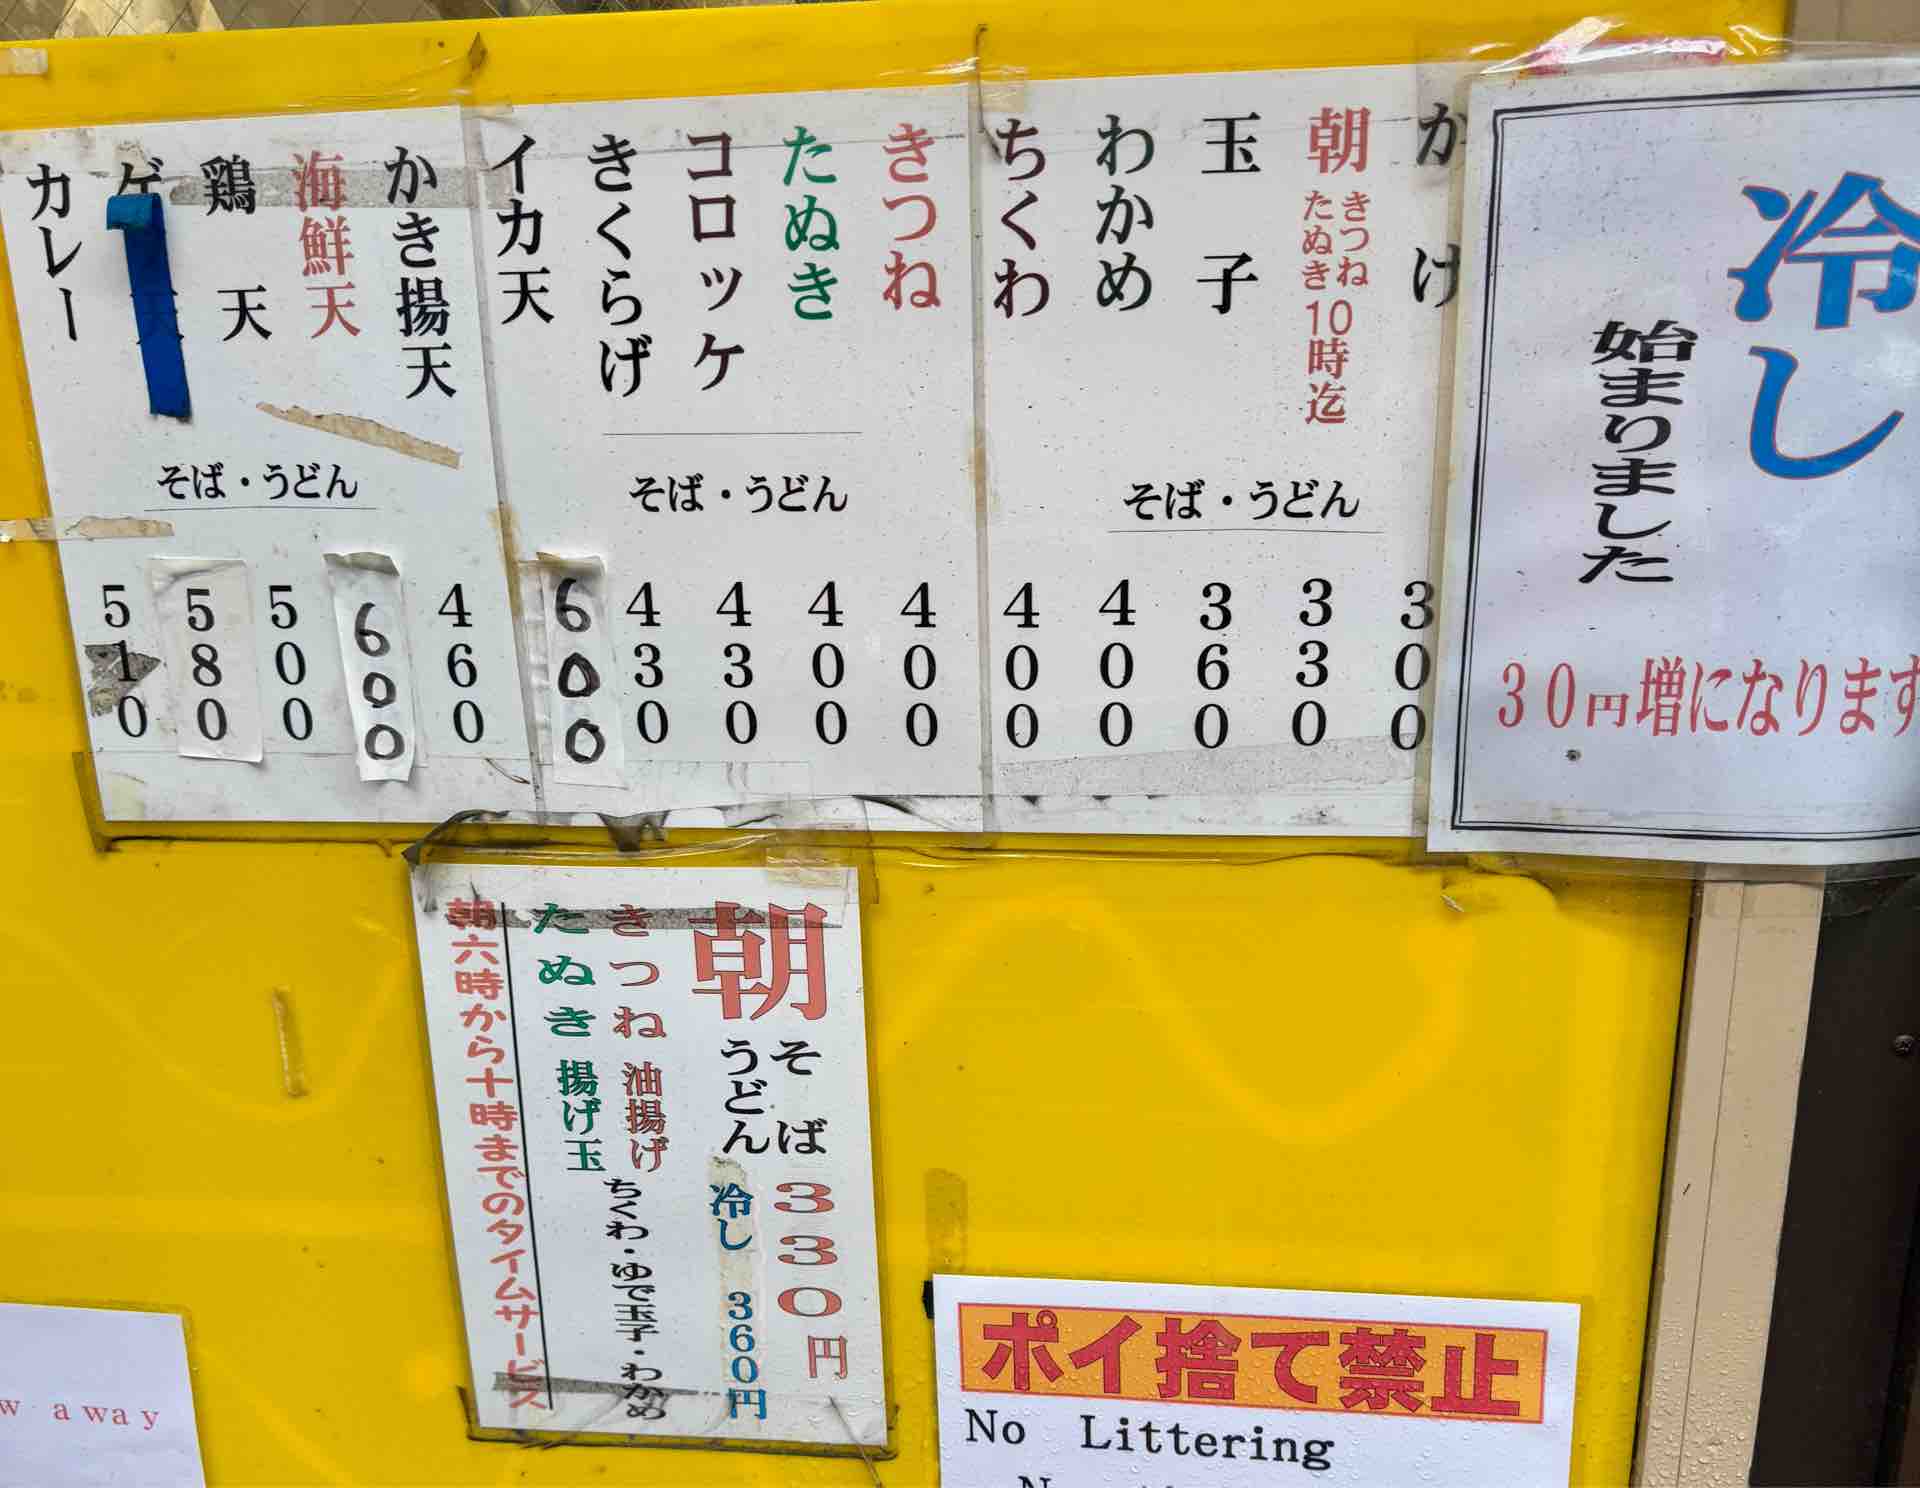 冷し
始まりました
30円増になります
かけ
300
朝
きつね
たぬき
10時迄
330
玉子
360
わかめ
400
ちくわ
400
そば・うどん
きつね
400
たぬき
400
コロッケ
430
きくらげ
430
イカ天
600
そば・うどん
かき揚天
460
海鮮天
600
鶏天
500
ゲ天
580
カレー
510
そば・うどん
朝
そば
うどん
330円
冷し 360円
きつね 油揚げ
たぬき 揚げ玉
ちくわ・ゆで玉子・わかめ
朝六時から十時までのタイムサービス
ポイ捨て禁止
No Littering
w away